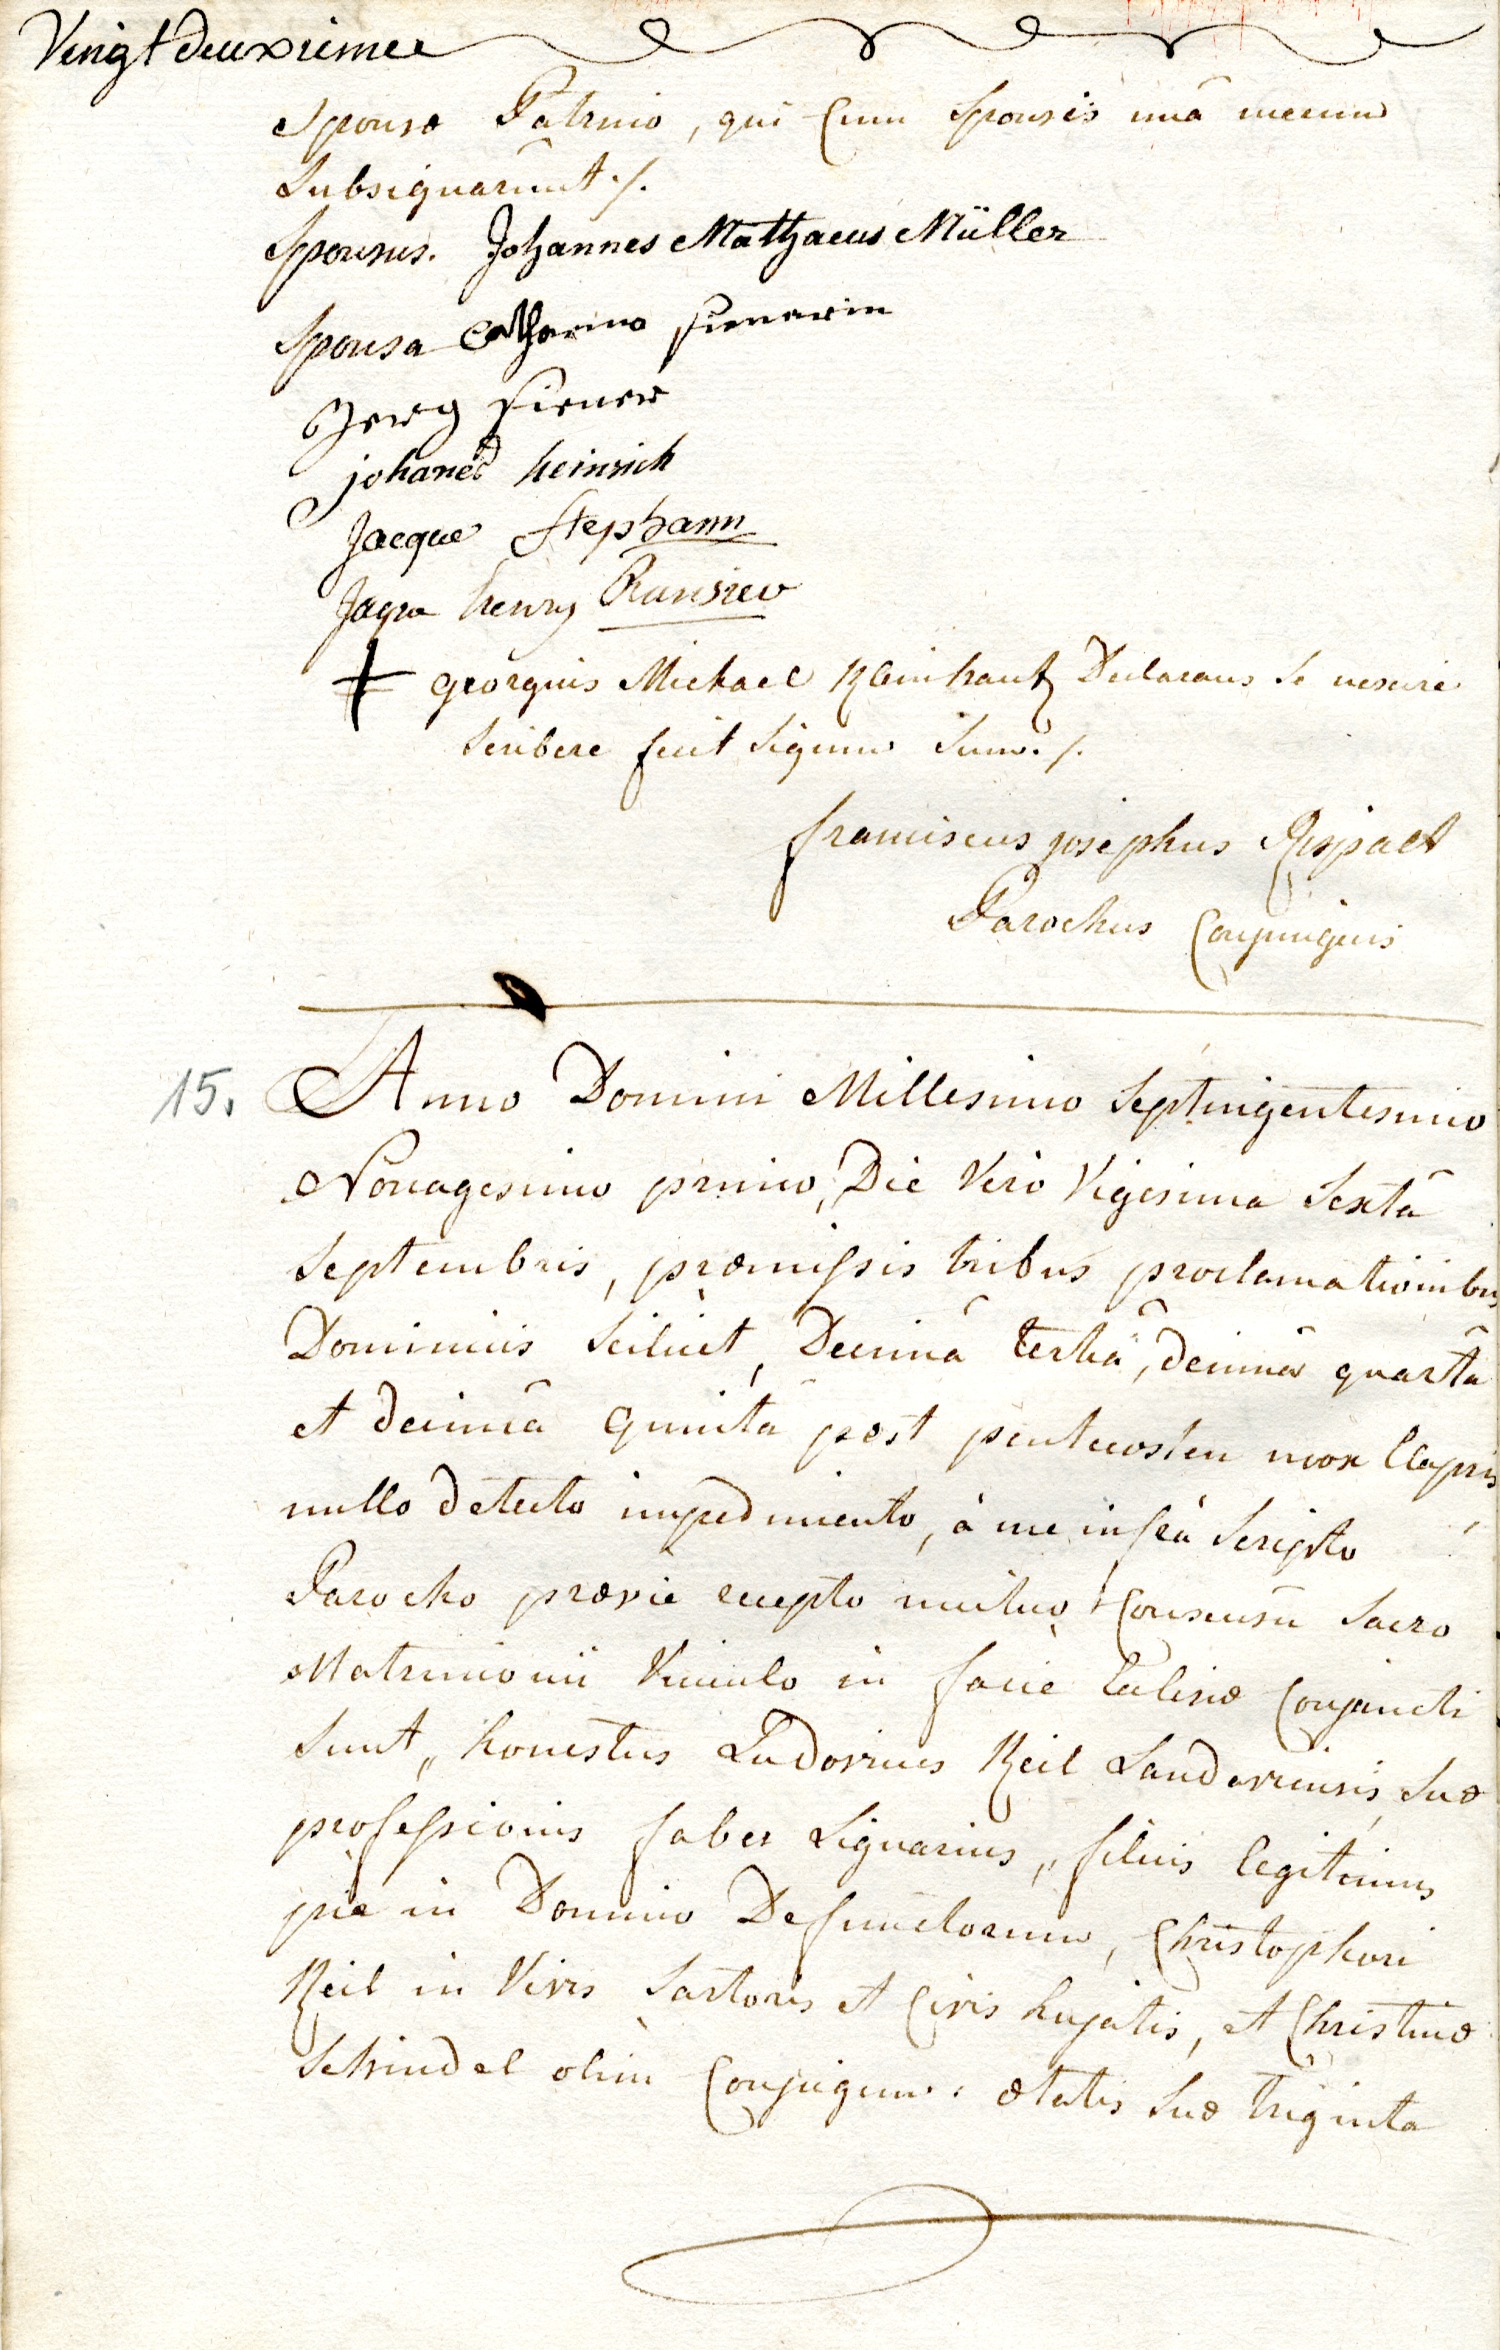 Vengtdeuxieme
Sponsæ Patrino, qui Cum Sponsis unâ mecum
Subsignarunt ./.
Sponsus. Johannes Mathaeus Müller
Sponsa Catharina
Jerg
johanes heinrich
Jacque Stephann
henry
+ georgius Michael Kleinhantz Declarans Se nescire
Scribere fecit Signum Suum. /.
franciscus josephus
Parochus Conjungens
15. Anno Domini Millesimo Septingentesimo
Nonagesimo primo, Die Vero Vigesima Sextâ
Septembris, præmissis tribus proclamationibus
Dominicis Scilicet, Decimâ tertiâ, decimâ quartâ
et decimâ quintâ post pentecosten mox Elapsis
nullo detecto impedimento, à me infrà Scripto
Parocho prævie recepto mutuo Consensu Sacro
Matrimonii Vinculo in facie Eclesiæ Conjuncti
Sunt, honestus Ludovicus Keil Landaviensis, Suæ
professionis faber Lignarius, filius legitimus
pie in Domino Defunctorum, Christophori
Keil in Vivis Sartoris et Civis hujatis, et Christinæ
Schindel olim Conjugum: ætatis Suæ triginta